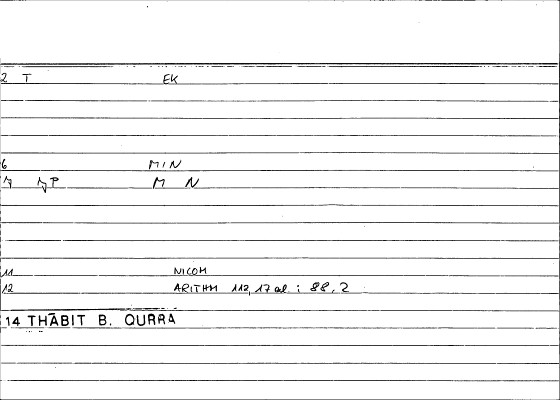 2 T EK
6 MIN
M N
11 NICOM
12 ARITHM 112,17 al : 88.2
14 THĀBIT B. QURRA